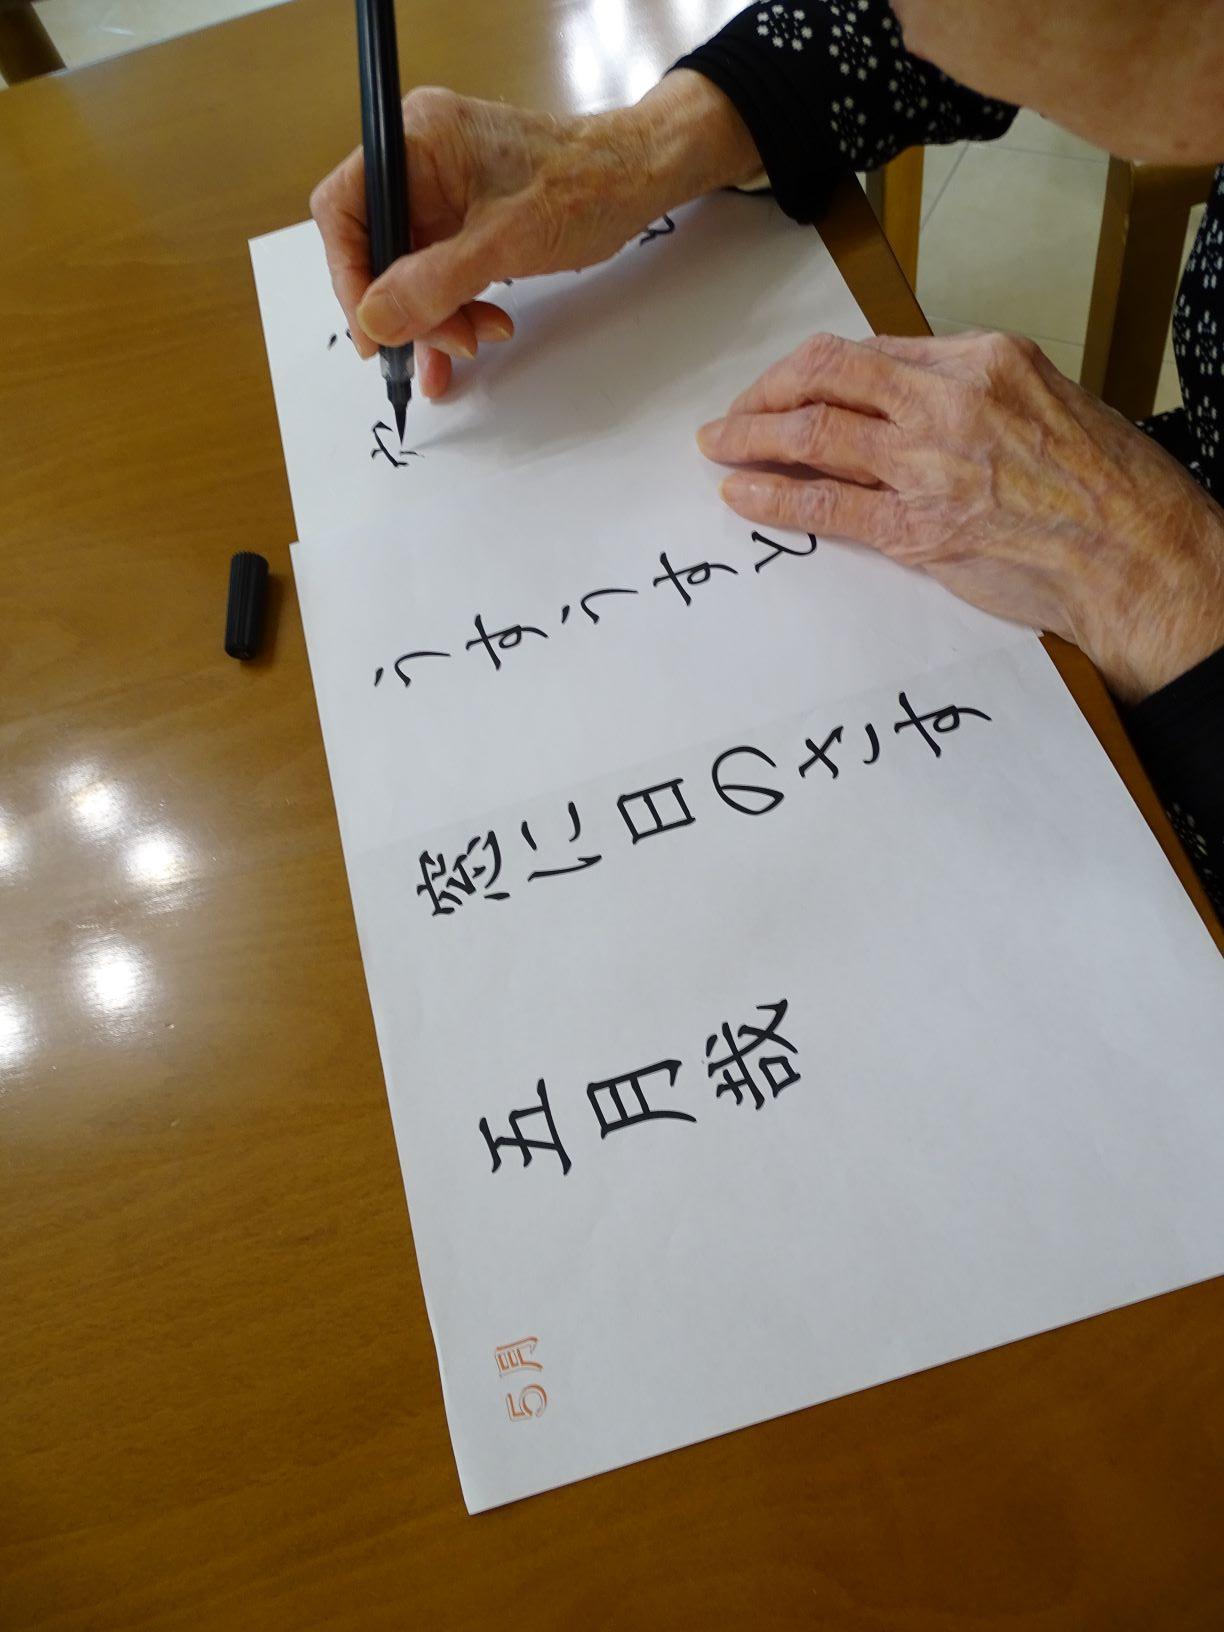 うすうすと
窓に日のさす
五月哉
5月